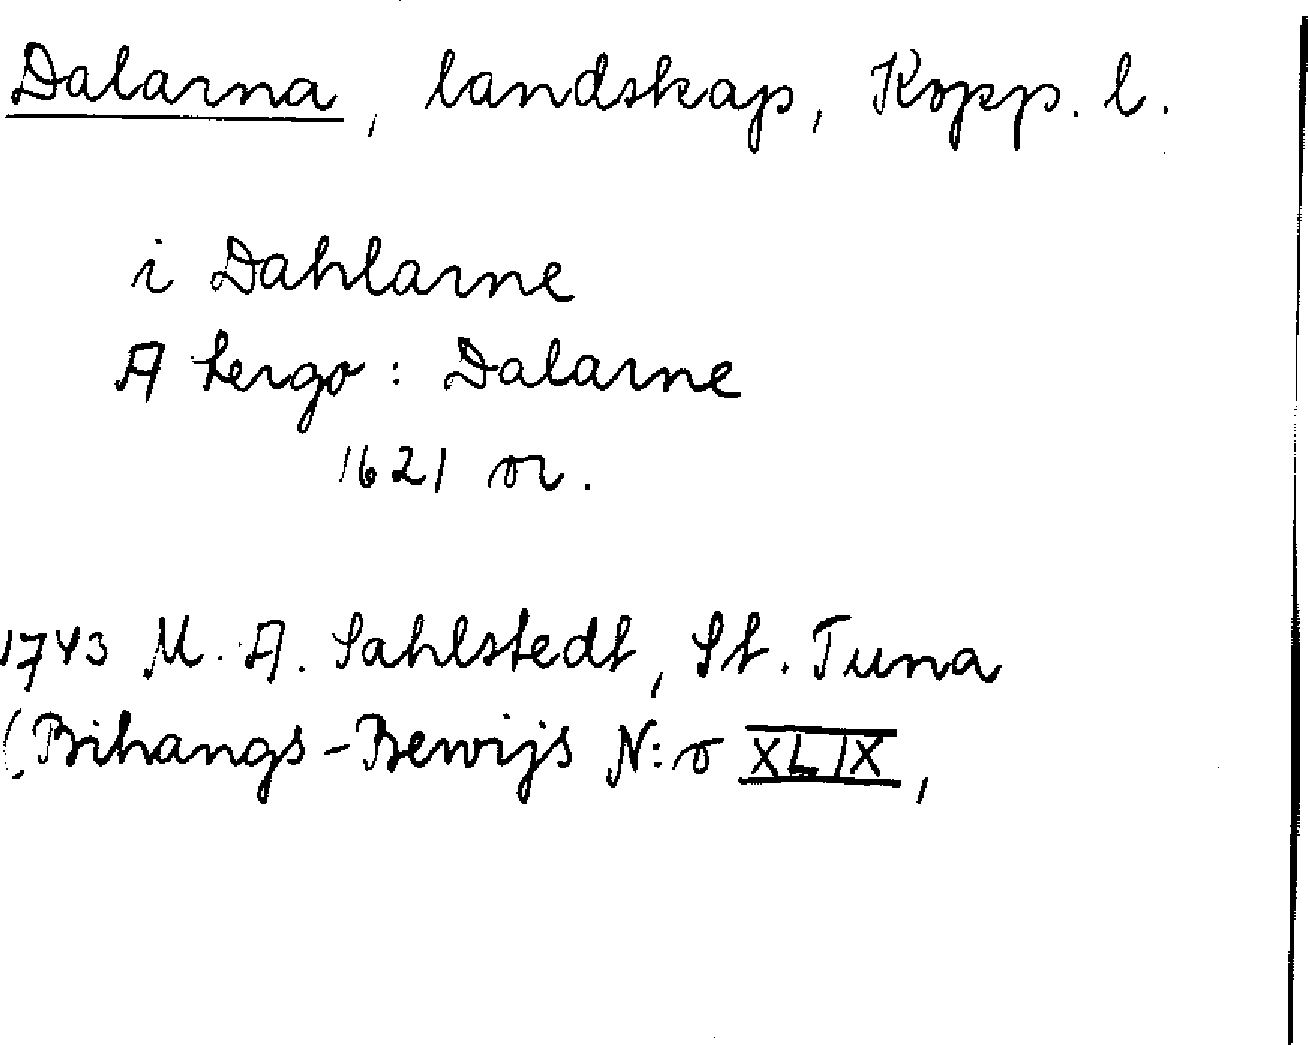 Dalarna, landskap, Kopp. l.
i Dahlarne
A tergo: Dalarne
1621 or.
1743 M. A. Sahlstedt, St. Tuna
(Bihangs-Bewijs N:o XLIX,